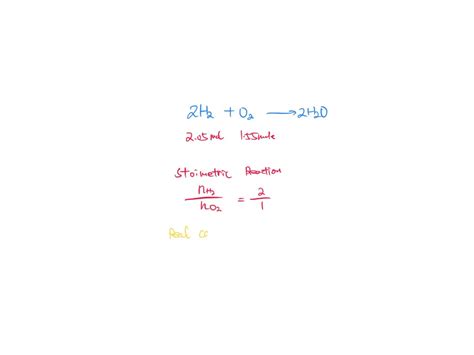 2H₂ + O₂ ⟶ 2H₂O
2.05 mol 1.55 mole
Stoimetric Reaction
nH₂ / nO₂ = 2 / 1
Real